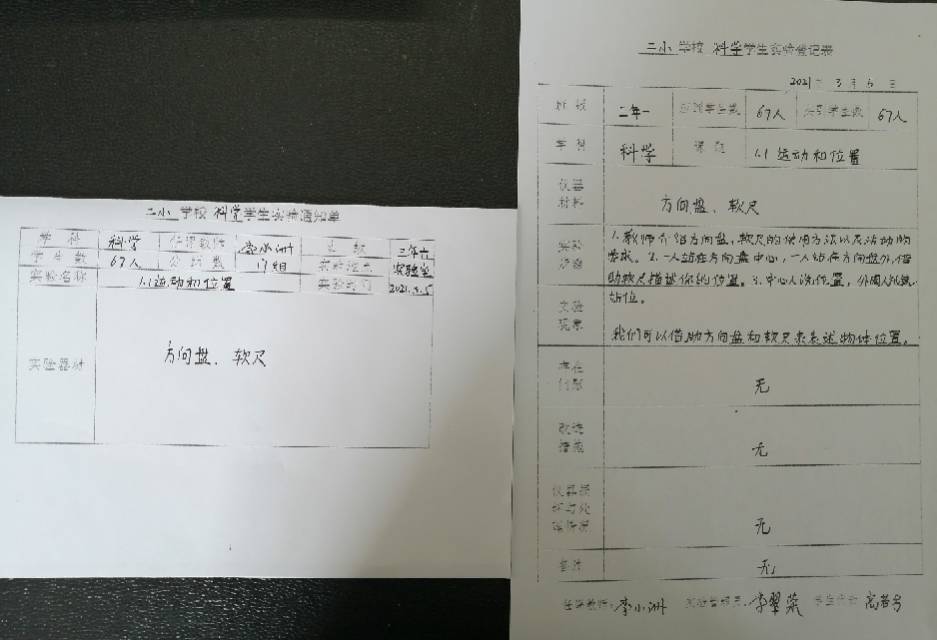 二小 学校 科学学生实验通知单
学科 科学 任课教师 李小洲 班级 三年六
学生数 67人 分组数 17组 实验地点 实验室
实验名称 1.1运动和位置 实验时间 2021.3.5
实验器材 方向盘、软尺
二小 学校 科学学生实验登记表
2021年3月5日
班级 二年一 应到学生数 67人 实到学生数 67人
学科 科学 课题 1.1 运动和位置
仪器材料 方向盘、软尺
实验步骤 1.教师介绍方向盘,软尺的使用方法以及活动的
要求。2.一人站在方向盘中心,一人站在方向盘外,借
助软尺描述你的位置。3.中心人说位置,外围人
站位。
实验现象 我们可以借助方向盘和软尺来表述物体位置。
存在问题 无
改进措施 无
仪器损坏与处理情况 无
备注 无
任课教师:李小洲 实验管理员:李翠荣 学生代表